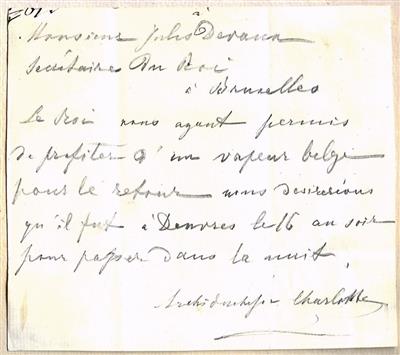 à
Monsieur Jules Devaux
Secrétaire Du Roi
à Bruxelles
Le Roi nous ayant permis
de profiter d'un vapeur belge
pour le retour nous désirerions
qu'il fut à Douvres le 16 au soir
pour passer dans la nuit.
Archiduchesse Charlotte